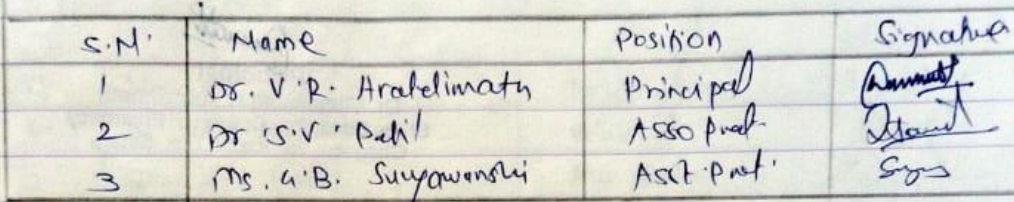 S.N. Name Position Signature
1 Dr. V.R. Aratelimath Principal
2 Dr. S.V. Patil Asso Prof.
3 Ms. G.B. Suryawanshi Asst. Prof.